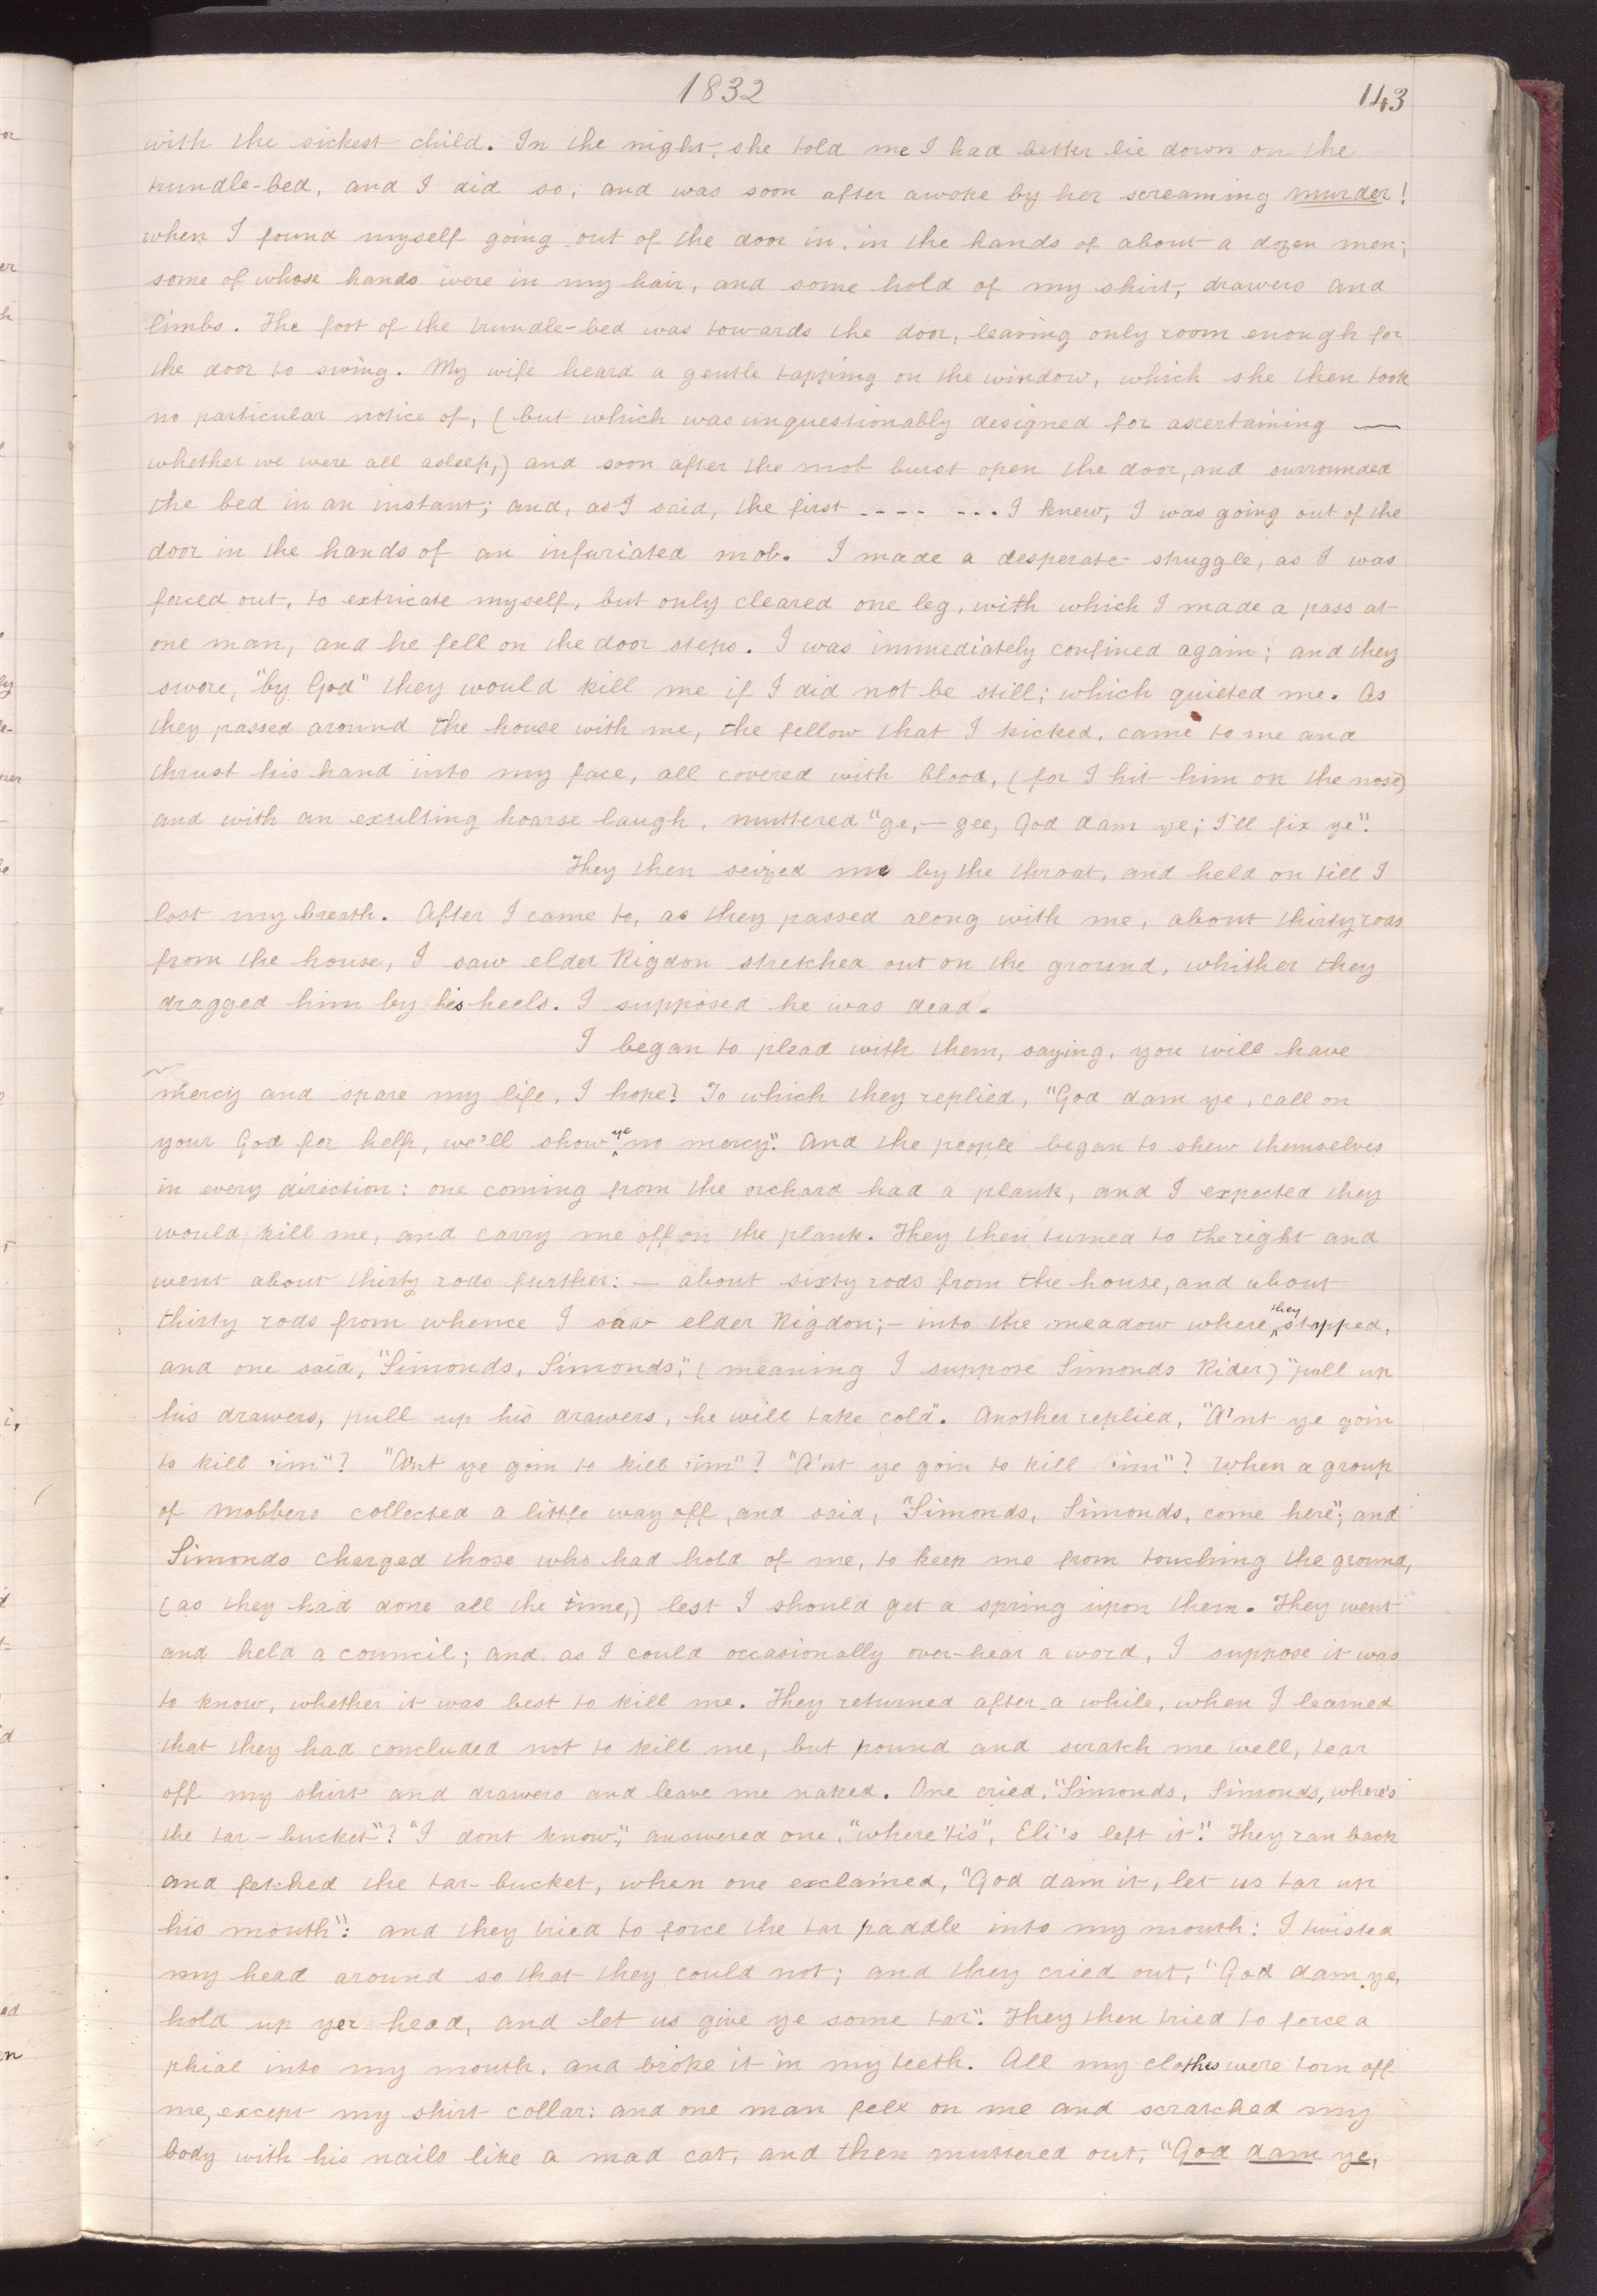 1832
143
with the sickest child. In the night, she told me I had better lie down on the
trundle-bed, and I did so, and was soon after awoke by her screaming murder!
when I found myself going out of the door in, in the hands of about a dozen men;
some of whose hands were in my hair, and some hold of my shirt, drawers and
limbs. The foot of the trundle-bed was towards the door, leaving only room enough for
the door to swing. My wife heard a gentle tapping on the window, which she then took
no particular notice of, (but which was unquestionably designed for ascertaining —
whether we were all asleep,) and soon after the mob burst open the door, and surrounded
the bed in an instant; and, as I said, the first .... ... I knew, I was going out of the
door in the hands of an infuriated mob. I made a desperate struggle, as I was
forced out, to extricate myself, but only cleared one leg, with which I made a pass at
one man, and he fell on the door steps. I was immediately confined again; and they
swore, "by God" they would kill me if I did not be still; which quieted me. As
they passed around the house with me, the fellow that I kicked, came to me and
thrust his hand into my face, all covered with blood, (for I hit him on the nose)
and with an exulting hoarse laugh, muttered "ge,—gee, God dam ye; I'll fix ye".
They then seized me by the throat, and held on till I
lost my breath. After I came to, as they passed along with me, about thirty rods
from the house, I saw elder Rigdon stretched out on the ground, whither they
dragged him by his heels. I supposed he was dead.
I began to plead with them, saying, you will have
mercy and spare my life, I hope? To which they replied, "God dam ye, call on
your God for help, we'll show ye no mercy". And the people began to shew themselves
in every direction: one coming from the orchard had a plank, and I expected they
would kill me, and carry me off on the plank. They then turned to the right and
went about thirty rods further: — about sixty rods from the house, and about
thirty rods from whence I saw elder Rigdon;— into the meadow where they stopped,
and one said, "Simonds, Simonds," (meaning I suppose Simonds Rider) "pull up
his drawers, pull up his drawers, he will take cold". Another replied, "A'nt ye goin
to kill 'im"? "A'nt ye goin to kill 'im"? "A'nt ye goin to kill 'im"? When a group
of mobbers collected a little way off, and said, "Simonds, Simonds, come here"; and
Simonds charged those who had hold of me, to keep me from touching the ground,
(as they had done all the time,) lest I should get a spring upon them. They went
and held a council; and as I could occasionally over-hear a word, I suppose it was
to know, whether it was best to kill me. They returned after a while, when I learned
that they had concluded not to kill me, but pound and scratch me well, tear
off my shirt and drawers and leave me naked. One cried, "Simonds, Simonds, where's
the tar-bucket"? "I dont know," answered one, "where 'tis", Eli's left it". They ran back
and fetched the tar-bucket, when one exclaimed, "God dam it, let us tar up
his mouth": and they tried to force the tar paddle into my mouth: I twisted
my head around so that they could not; and they cried out, "God dam ye,
hold up yer head, and let us give ye some tar". They then tried to force a
phial into my mouth, and broke it in my teeth. All my clothes were torn off
me, except my shirt collar: and one man fell on me and scratched my
body with his nails like a mad cat, and then muttered out, "God dam ye,